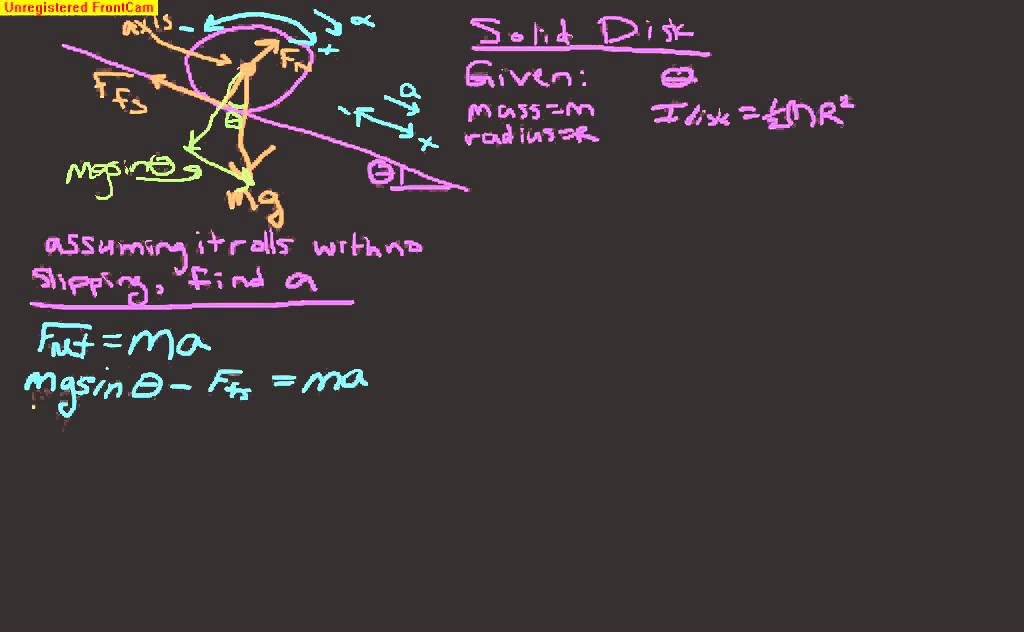 Unregistered FrontCam
axis
- α
+
FN
Ffs
θ
- a
+
mgsinθ
mg
θ
Solid Disk
Given: θ
mass=m
radius=R
I disk = ½MR²
assuming it rolls with no
slipping, find a
FNet = ma
mgsinθ - Ffs = ma